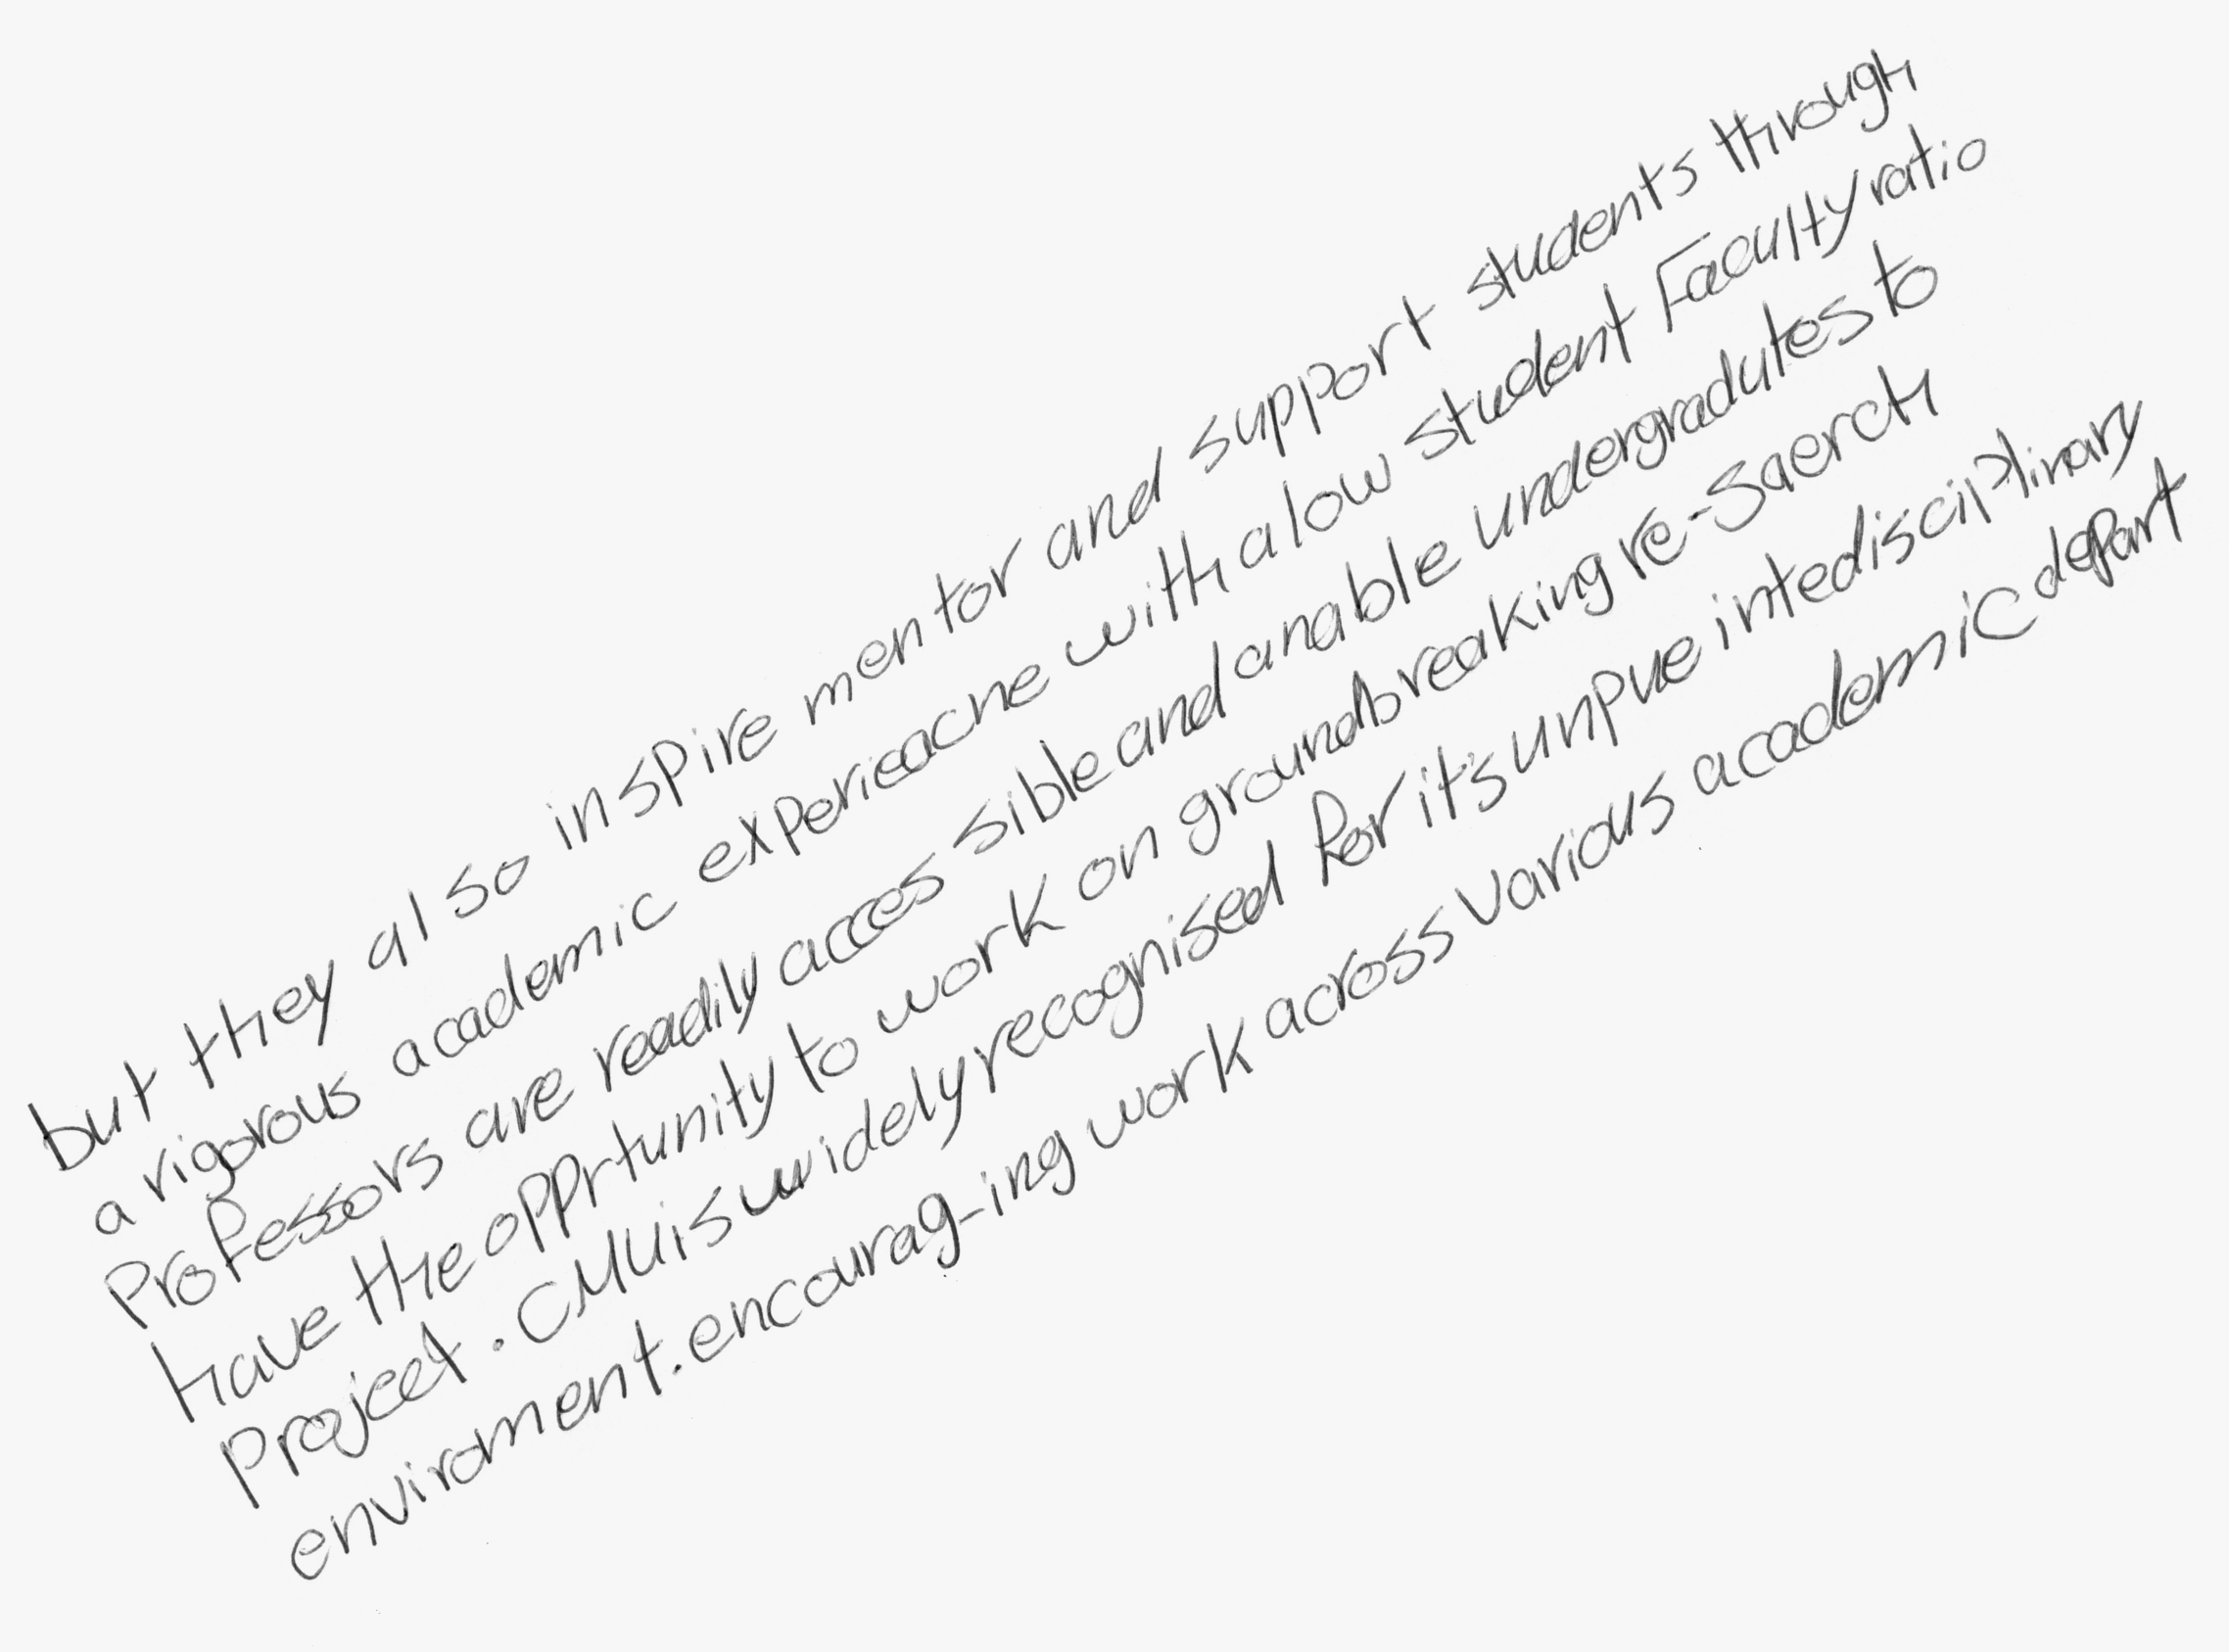 but they also inspire mentor and support students through
a rigorous academic experieacne with a low student Faculty ratio
Professors are readily acces sible and anable undergradutes to
have the opprtunity to work on groundbreaking re-saerch
project. CMU is widely recognised for it's unpue intedisciplinary
enviroment. encourag-ing work across various academic depart